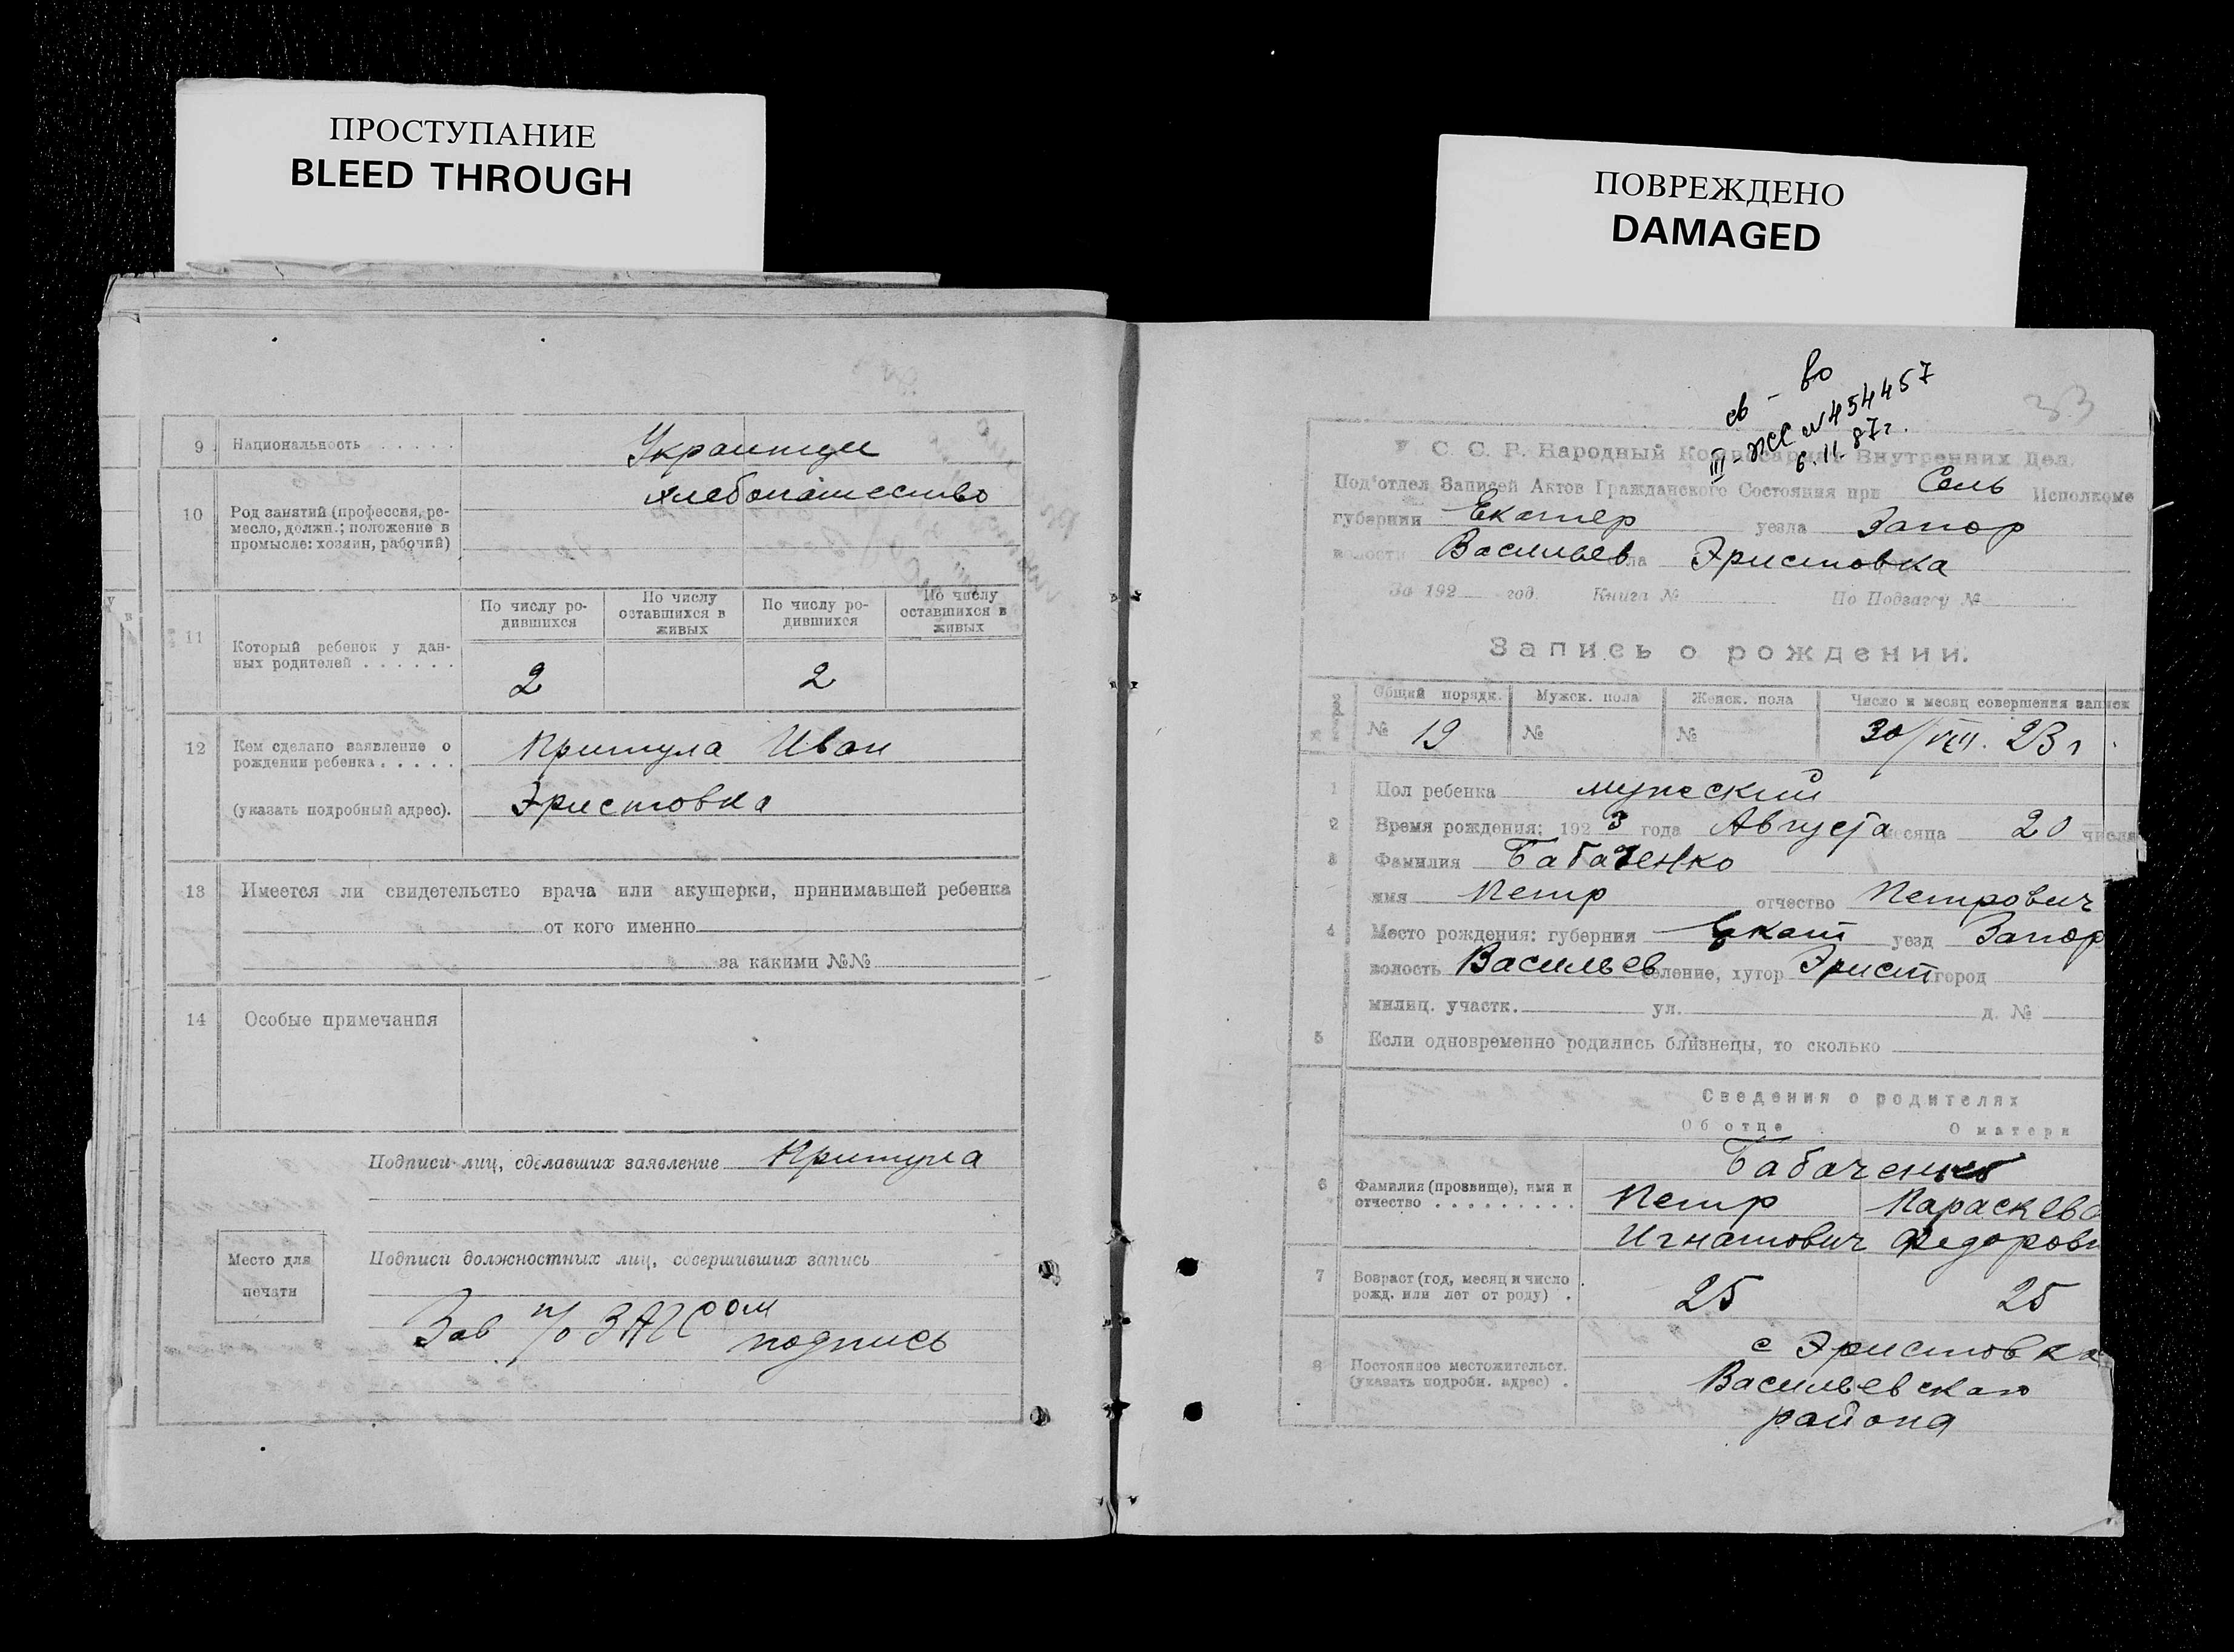 ПРОСТУПАНИЕ
BLEED THROUGH
9 Национальность . . . . . Украинцы
хлебопашество
10 Род занятий (профессия, ре-
месло, должн.; положение в
промысле: хозяин, рабочий)
11 Который ребенок у дан-
ных родителей . . . . . .
По числу ро-
дившихся
По числу
оставшихся в
живых
По числу ро-
дившихся
По числу
оставшихся в
живых
2 2
12 Кем сделано заявление о
рождении ребенка . . . . .
(указать подробный адрес).
Притула Иван
Эристовка
13 Имеется ли свидетельство врача или акушерки, принимавшей ребенка
от кого именно
за какими №№
14 Особые примечания
Подписи лиц, сделавших заявление Притула
Место для
печати
Подписи должностных лиц, совершивших запись
Зав п/о ЗАГСом подпись
ПОВРЕЖДЕНО
DAMAGED
св - во
III-ЖС № 454457
6.11.87г.
33
У. С. С. Р. Народный Комиссариат Внутренних Дел.
Под'отдел Записей Актов Гражданского Состояния при Сель Исполкоме
губернии Екатер уезла Запор
волости Васильев села Эристовка
За 192 год. Книга № По Подзагсу №
Запись о рождении.
Общий порядк. Мужск. пола Женск. пола Число и месяц совершения записи
№ 19 № № 30/VIII. 23 г.
1 Пол ребенка мужеский
2 Время рождения: 1923 года Августа месяца 20 числа
3 Фамилия Бабаченко
имя Петр отчество Петрович
4 Место рождения: губерния Екат уезд Запор
волость Васильев селение, хутор Эрист город
милиц. участк. ул. д. №
5 Если одновременно родились близнецы, то сколько
Сведения о родителях
Об отце О матери
6 Фамилия (прозвище), имя и
отчество . . . . . . . . .
Бабаченко
Петр Параскева
Игнатович Федоровн
7 Возраст (год, месяц и число
рожд. или лет от роду) .
25 25
8 Постоянное местожительст.
(указать подробн. адрес) .
с Эристовка
Васильевскаго
района